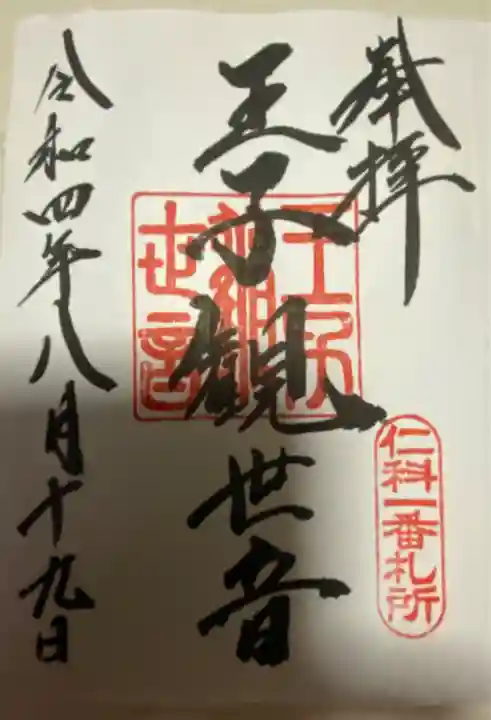 奉拝
仁科一番札所
王子観世音
王子観世音
令和四年八月十九日